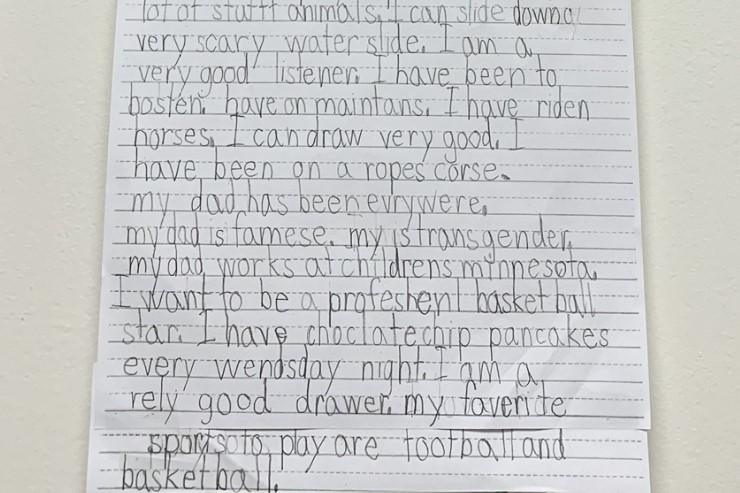 lot of stufft animals. I can slide down a
very scary water slide. I am a
very good listener. I have been to
bosten. have on maintans. I have riden
horses. I can draw very good. I
have been on a ropes corse.
my dad has been evrywere.
my dad is famese. my is transgender.
my dad works at childrens minnesota.
I want to be a profeshenl basket ball
star. I have choclate chip pancakes
every wendsday night. I am a
rely good drawer. my faverite
sports to play are football and
basket ball.